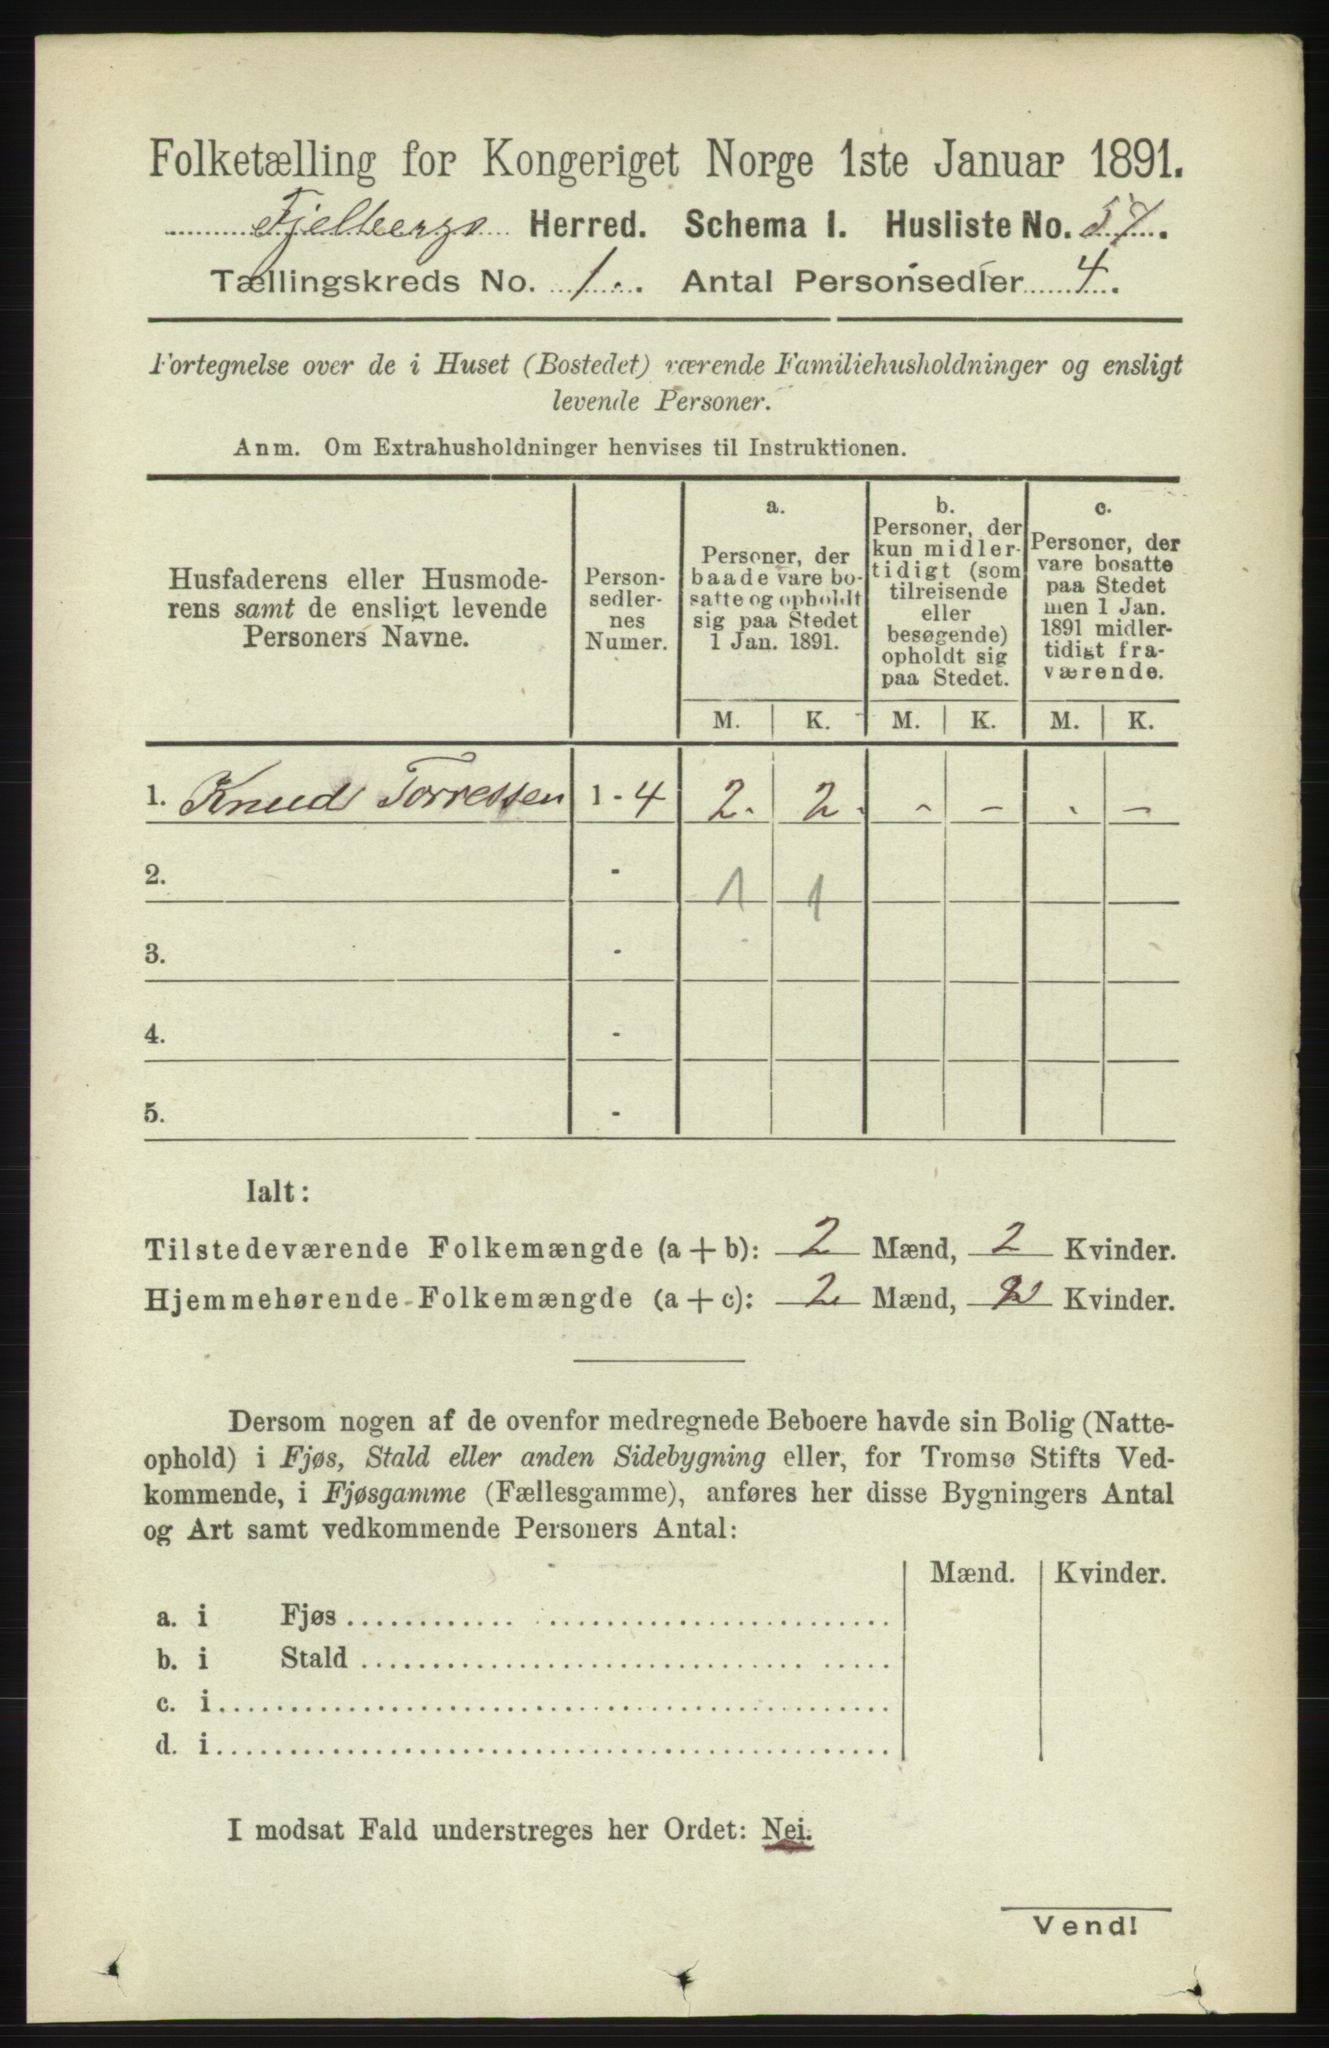 Folketælling for Kongeriget Norge 1ste Januar 1891.
Fjelbergs Herred. Schema I. Husliste No. 57.
Tællingskreds No. 1. Antal Personsedler 4.
Fortegnelse over de i Huset (Bostedet) værende Familiehusholdninger og ensligt
levende Personer.
Anm. Om Extrahusholdninger henvises til Instruktionen.
Husfaderens eller Husmode-
rens samt de ensligt levende
Personers Navne.
Person-
sedler-
nes
Numer.
a.
Personer, der
baade vare bo-
satte og opholdt
sig paa Stedet
1 Jan. 1891.
b.
Personer, der
kun midler-
tidigt (som
tilreisende
eller
besøgende)
opholdt sig
paa Stedet.
c.
Personer, der
vare bosatte
paa Stedet
men 1 Jan.
1891 midler-
tidigt fra-
værende.
M. K. M. K. M. K.
1. Knud Torressen 1 - 4 2. 2. - - - -
2. - 1 1
3. -
4. -
5. -
Ialt:
Tilstedeværende Folkemængde (a + b): 2 Mænd, 2 Kvinder.
Hjemmehørende Folkemængde (a + c): 2 Mænd, 2 Kvinder.
Dersom nogen af de ovenfor medregnede Beboere havde sin Bolig (Natte-
ophold) i Fjøs, Stald eller anden Sidebygning eller, for Tromsø Stifts Ved-
kommende, i Fjøsgamme (Fællesgamme), anføres her disse Bygningers Antal
og Art samt vedkommende Personers Antal:
Mænd. Kvinder.
a. i Fjøs
b. i Stald
c. i
d. i
I modsat Fald understreges her Ordet: Nei.
Vend!